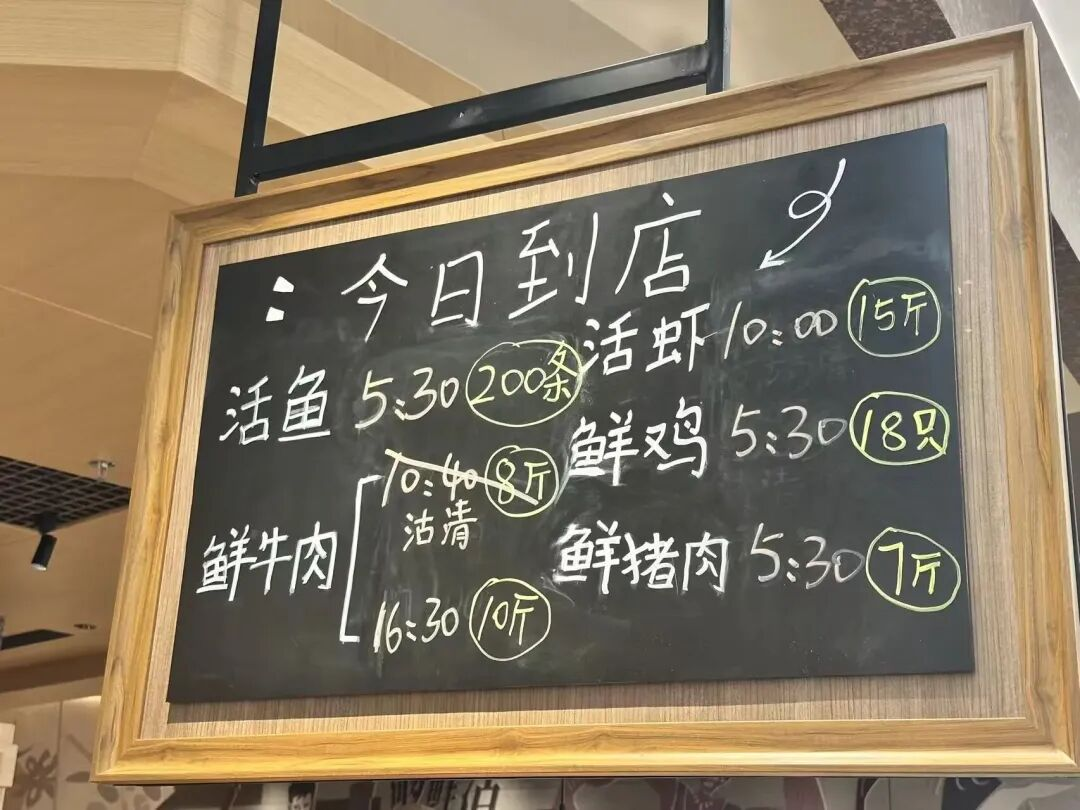 今日到店
活鱼 5:30 200条
鲜牛肉 10:40 8斤
沽清
16:30 10斤
活虾 10:00 15斤
鲜鸡 5:30 18只
鲜猪肉 5:30 7斤